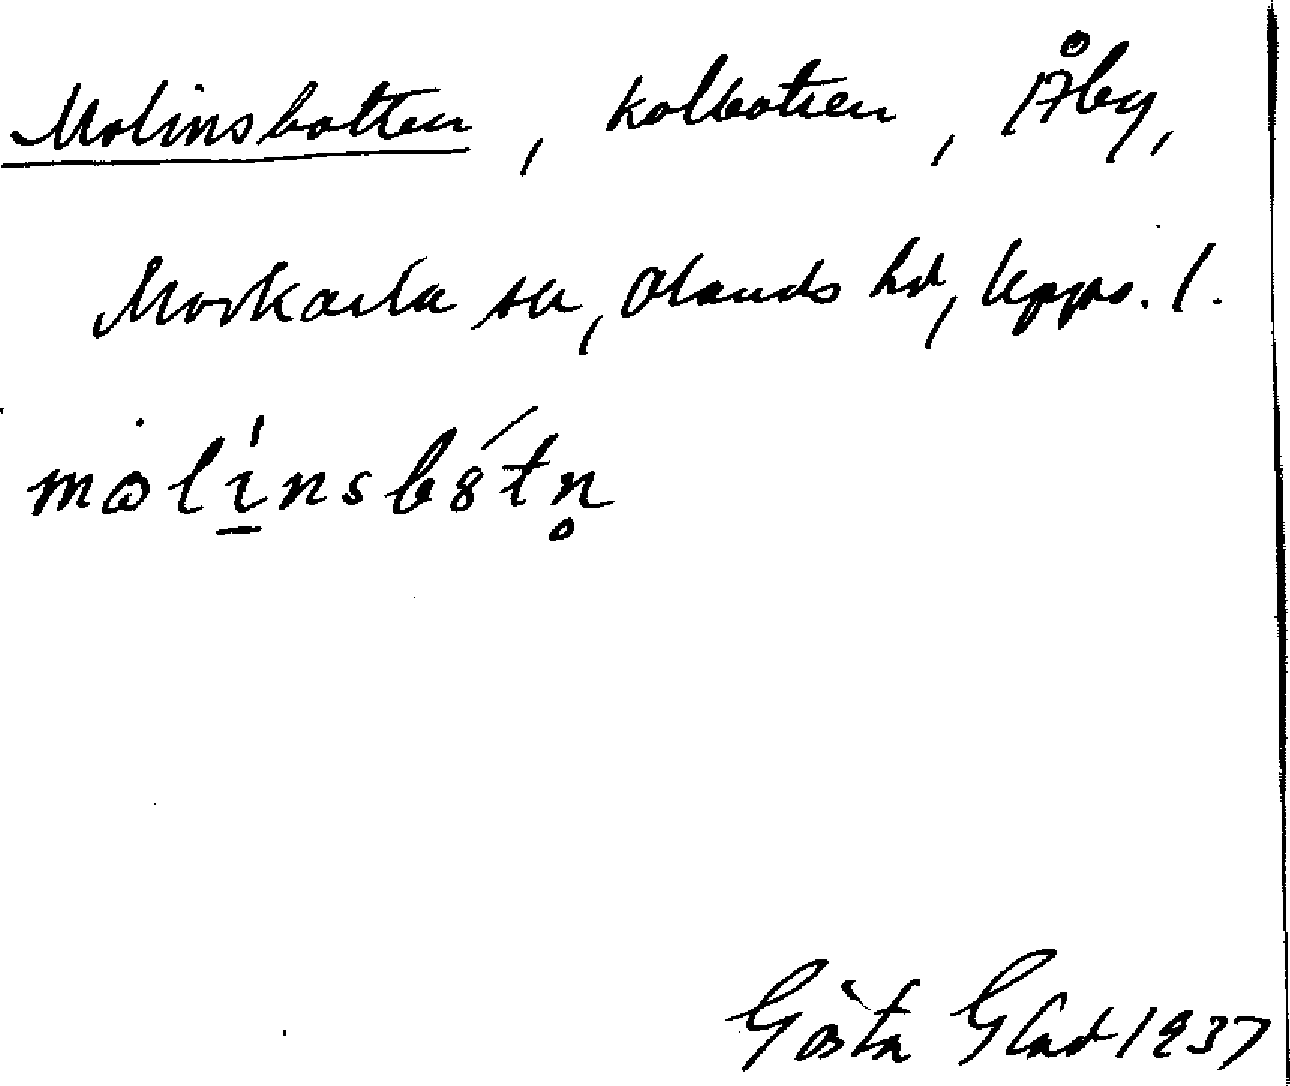 Molinsbotten, kolbotten, Åby,
Morkarla sn, Olands hd, Upps. l.
mɷli̱nsb8́tn̥
Gösta Glad 1937